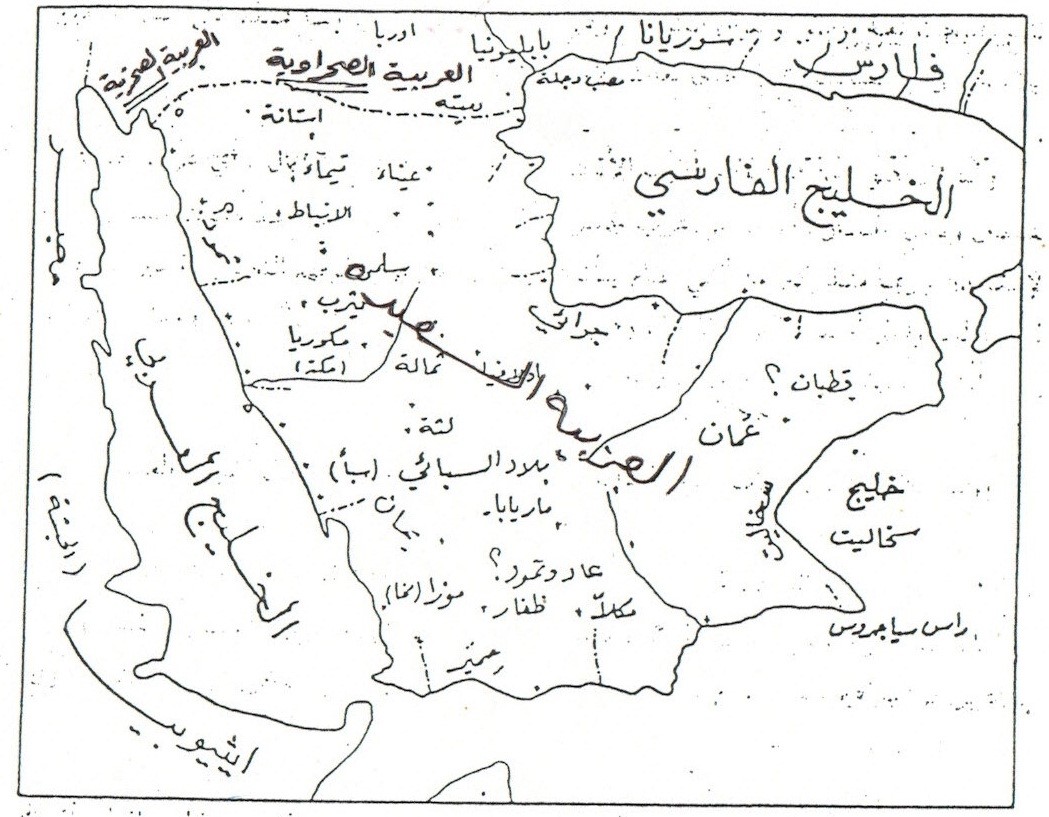 اوربا
بابليونيا
سوريانا
فارس
العربية الصخرية
العربية الصحراوية
مصب دجلة
بيته
استانة
تيماء
عيناء
الانباط
الخليج الفارسي
مصر
سلمى
يثرب
مكوريا
(مكة)
ثمالة
جرائي
العربية السعيدة
قطبان ؟
عُمان
لثة
بلاد السبائي (سبأ)
ماريابا
خليج
سخاليت
سخاليت
عاد وثمود؟
موزا (المخا)
ظفار
مكلاّ
راس سياجروس
حمير
(الحبشة)
اثيوبيا